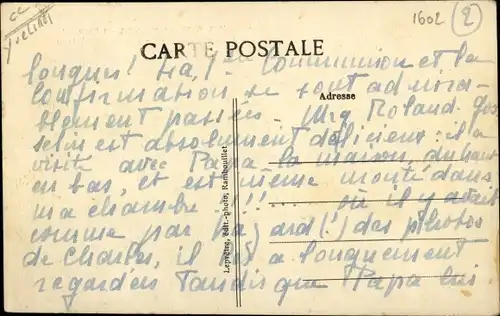 cc
Yvelines
1602
2
CARTE POSTALE
longues! La 1ère Communion et la
Confirmation se sont admira-
Adresse
blement passées. Mgr Roland-Gos
selin est absolument délicieux: il a
visité avec Papa la maison, du haut
en bas, et est même monté dans
ma chambre !!!... où il y avait
comme par hazard(!) des photos
de Chartes, il les a longuement
regardées tandis que Papa lui
Leprêtre, édit.-photo, Rambouillet